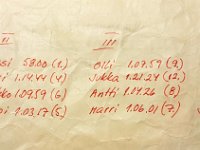 II III
si 58.00 (1.) Olli 1.07.59 (9.)
ri 1.14.44 (4.) Jukka 1.21.24 (12.)
ko 1.09.59 (6.) Antti 1.14.26 (8.)
pi 1.03.17 (5.) Harri 1.06.01 (7.)